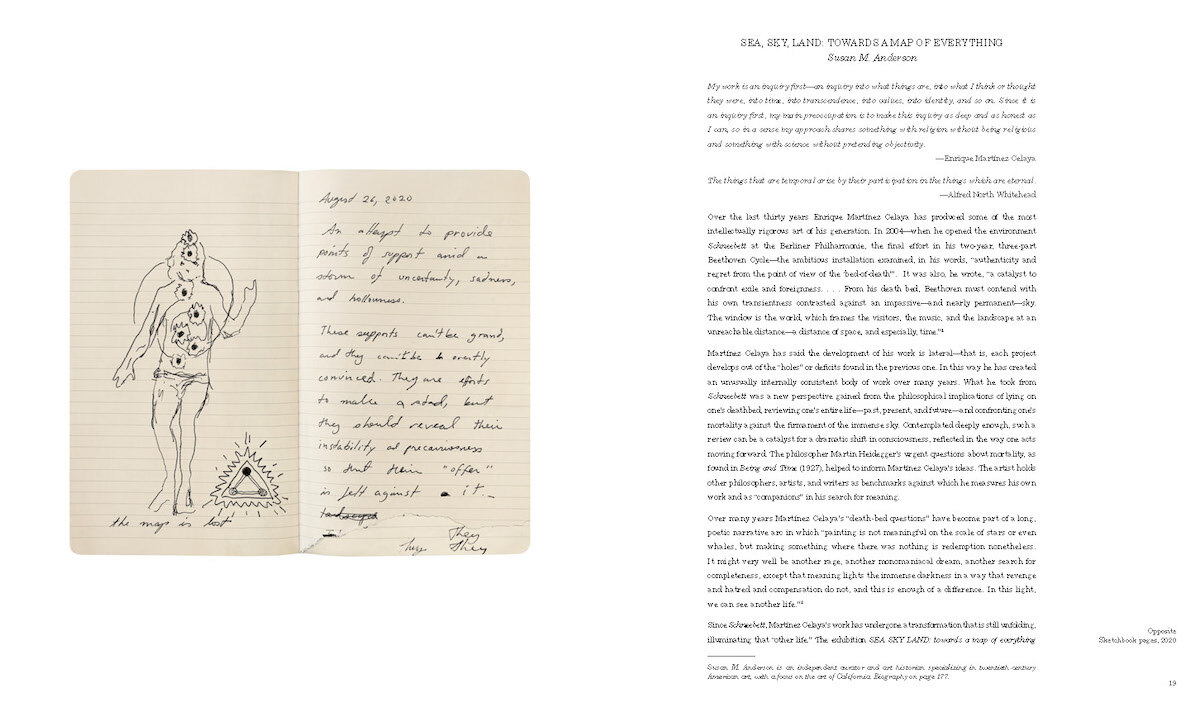 August 26, 2020
An attempt to provide
points of support amid a
storm of uncertainty, sadness,
and hollowness.
These supports can't be grand,
and they can't be overtly
convinced. They are efforts
to make a stand, but
they should reveal their
instability and precariousness
so that their "offer"
is felt against it.
They
They
the map is lost
SEA, SKY, LAND: TOWARDS A MAP OF EVERYTHING
Susan M. Anderson
My work is an inquiry first—an inquiry into what things are, into what I think or thought
they were, into time, into transcendence, into values, into identity, and so on. Since it is
an inquiry first, my main preoccupation is to make this inquiry as deep and as honest as
I can, so in a sense my approach shares something with religion without being religious
and something with science without pretending objectivity.
—Enrique Martínez Celaya
The things that are temporal arise by their participation in the things which are eternal.
—Alfred North Whitehead
Over the last thirty years Enrique Martínez Celaya has produced some of the most
intellectually rigorous art of his generation. In 2004—when he opened the environment
Schneebett at the Berliner Philharmonie, the final effort in his two-year, three-part
Beethoven Cycle—the ambitious installation examined, in his words, "authenticity and
regret from the point of view of the 'bed-of-death'". It was also, he wrote, "a catalyst to
confront exile and foreignness. . . . From his death bed, Beethoven must contend with
his own transientness contrasted against an impassive—and nearly permanent—sky.
The window is the world, which frames the visitors, the music, and the landscape at an
unreachable distance—a distance of space, and especially, time."¹
Martínez Celaya has said the development of his work is lateral—that is, each project
develops out of the "holes" or deficits found in the previous one. In this way he has created
an unusually internally consistent body of work over many years. What he took from
Schneebett was a new perspective gained from the philosophical implications of lying on
one's deathbed, reviewing one's entire life—past, present, and future—and confronting one's
mortality against the firmament of the immense sky. Contemplated deeply enough, such a
review can be a catalyst for a dramatic shift in consciousness, reflected in the way one acts
moving forward. The philosopher Martin Heidegger's urgent questions about mortality, as
found in Being and Time (1927), helped to inform Martínez Celaya's ideas. The artist holds
other philosophers, artists, and writers as benchmarks against which he measures his own
work and as "companions" in his search for meaning.
Over many years Martínez Celaya's "death-bed questions" have become part of a long,
poetic narrative arc in which "painting is not meaningful on the scale of stars or even
whales, but making something where there was nothing is redemption nonetheless.
It might very well be another rage, another monomaniacal dream, another search for
completeness, except that meaning lights the immense darkness in a way that revenge
and hatred and compensation do not, and this is enough of a difference. In this light,
we can see another life."²
Since Schneebett, Martínez Celaya's work has undergone a transformation that is still unfolding,
illuminating that "other life." The exhibition SEA SKY LAND: towards a map of everything
Susan M. Anderson is an independent curator and art historian specializing in twentieth-century
American art, with a focus on the art of California. Biography on page 177.
Opposite
Sketchbook pages, 2020
19